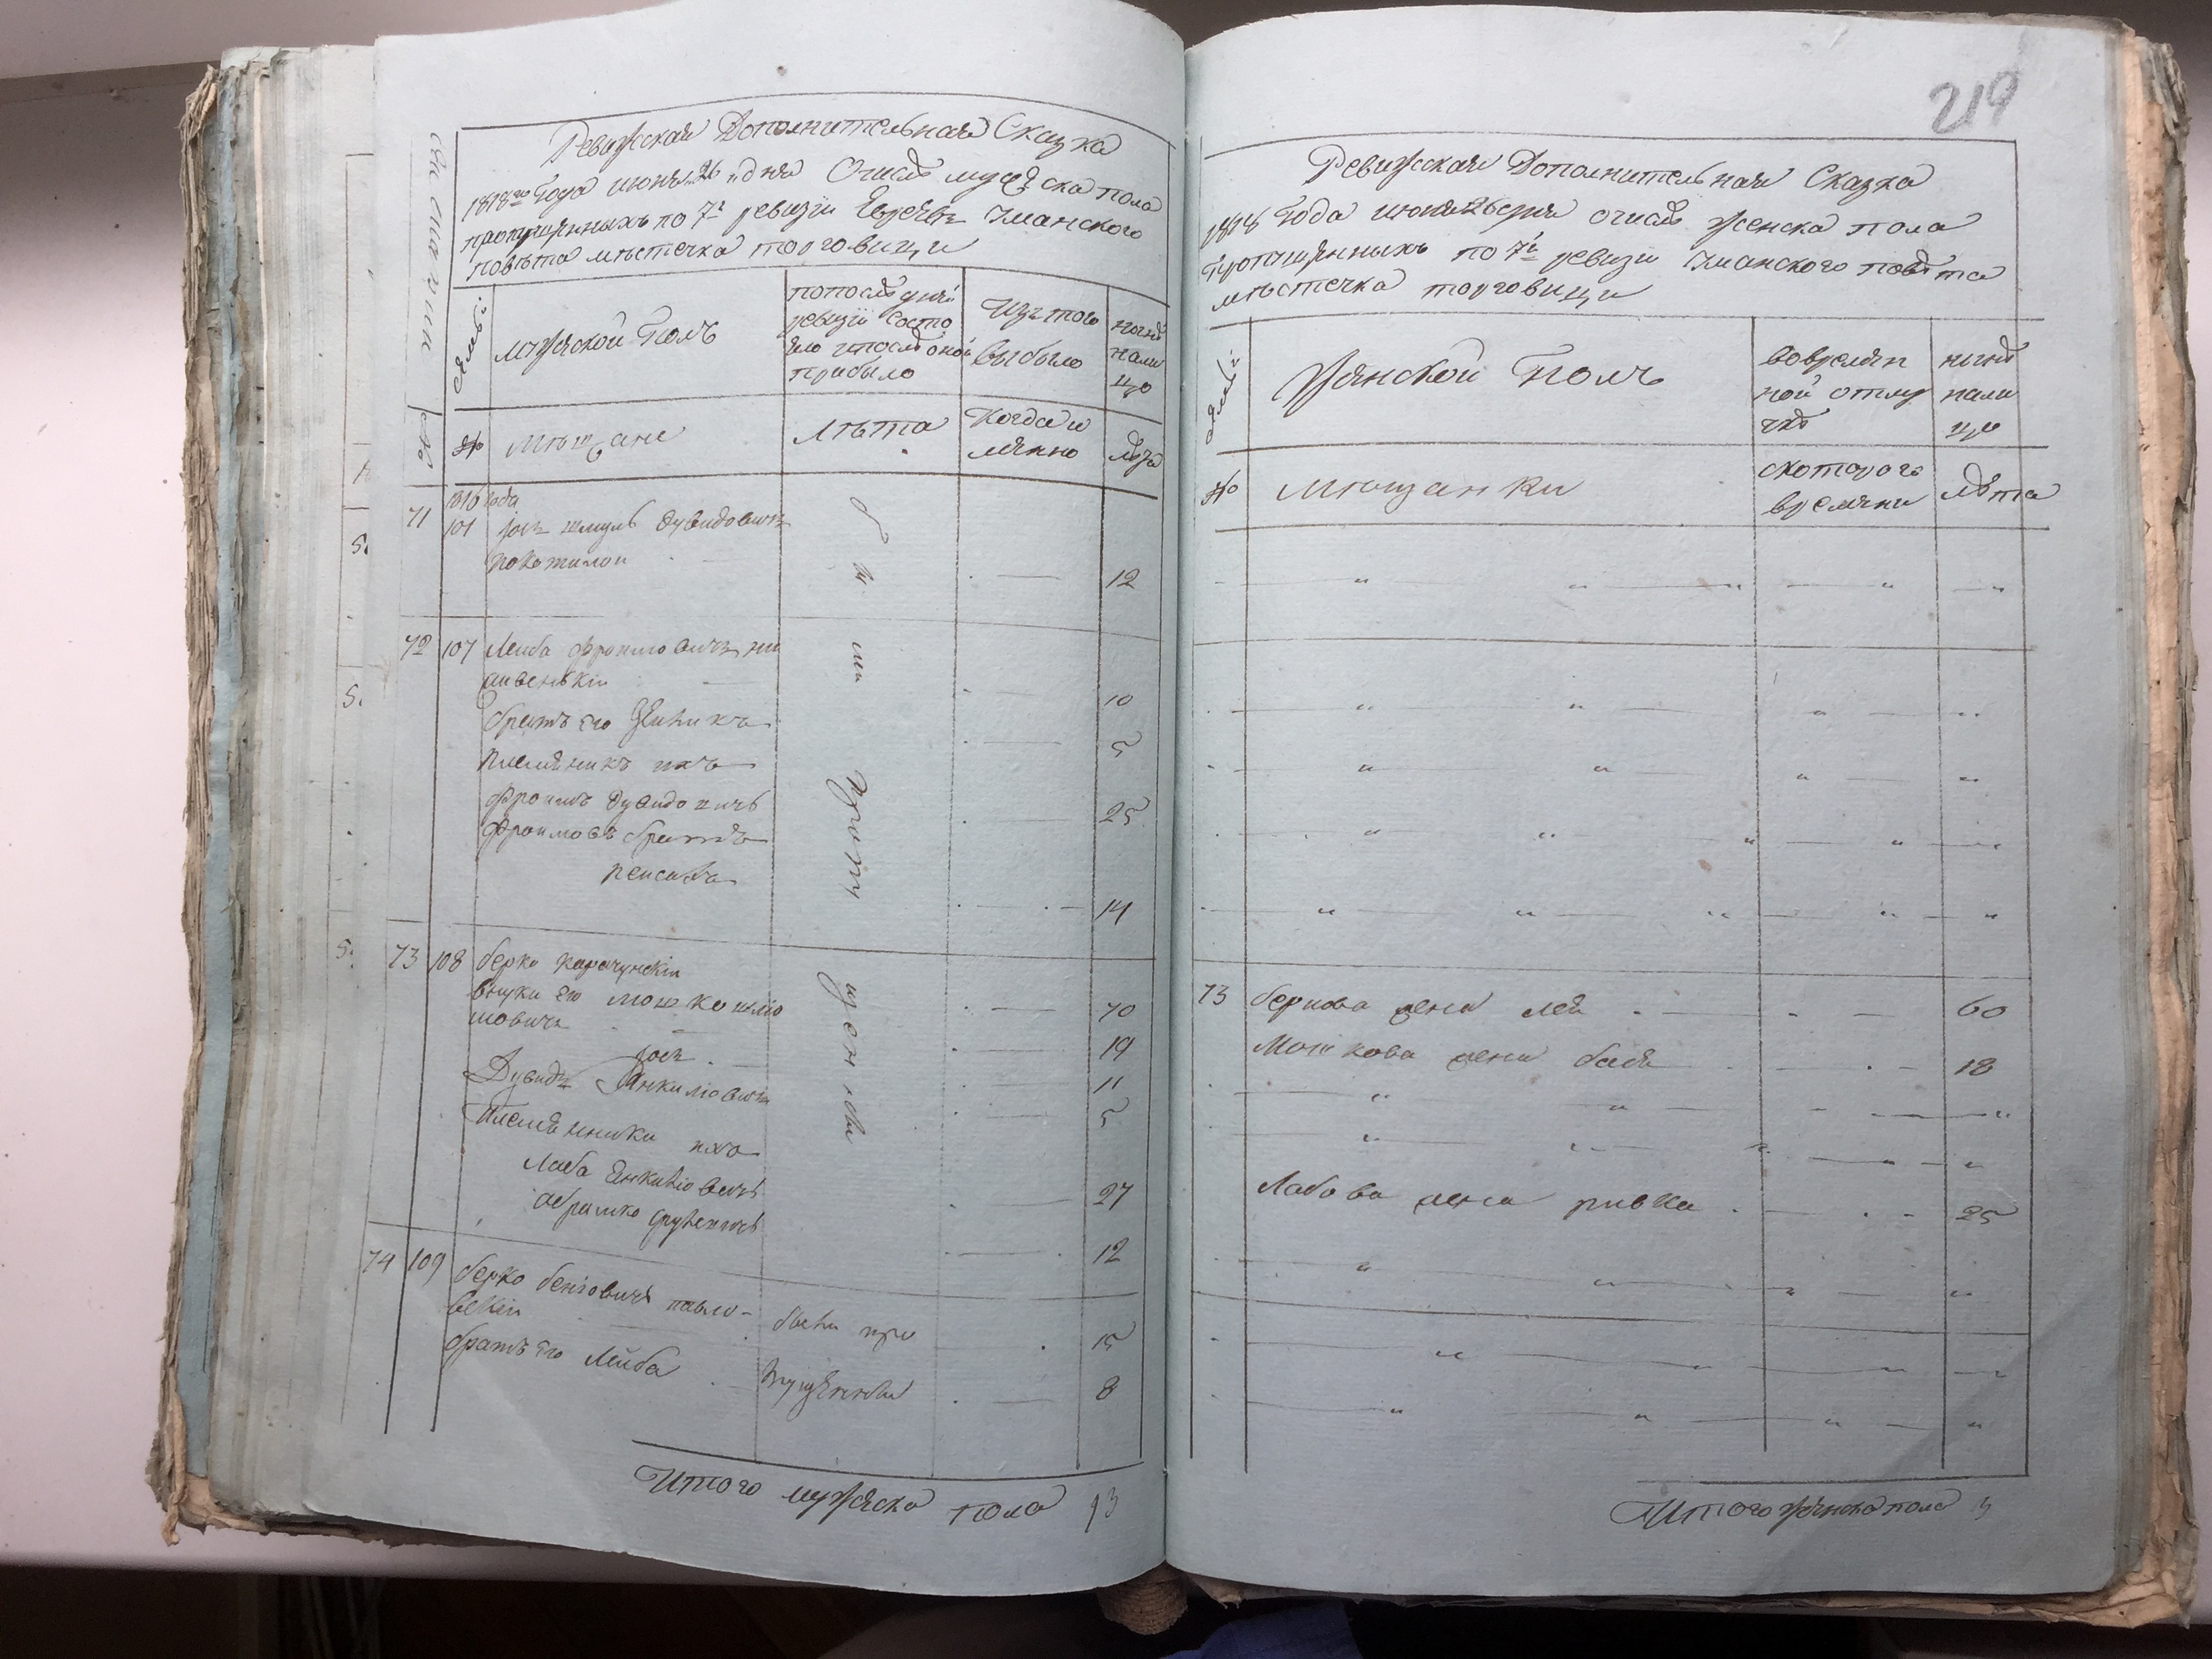 Ревижская Дополнительная Сказка
1818го Года июня 26 дня О числѣ мужеска пола
пропущенныхъ по 7й ревизіи Евреевъ Уманского
повѣта мѣстечка торговици
мужской Полъ
попослѣдней
ревизіи состо
яло и послѣ оной
прибыло
Изъ того
выбыло
нынѣ
нали
цо
№
мѣщане
Лѣта
Когда и
мянно
лѣта
1816 года
71 101 Іось шмуль дувидовичъ
покотилои 12
72 107 Леиба фроимовичъ
10
братъ его 5
племяникъ ихъ
фроимъ дувидовичъ 25
фроимовъ братъ
пеисахъ 14
73 108 берко карачунскіи 70
внуки его мошко
мовичъ 19
Іось 11
Дувидъ Янкиліовичъ 5
Племянники ихъ
Лаиба Енкиліовичъ 27
абрамко 12
были пропущенны
74 109 берко бенiовичъ павло-
вскіи были про 15
братъ его Лейба пущенны 8
Итого мужеска пола 13
219
Ревижская Дополнительная Сказка
1818 Года июня 26 дня о числѣ женска пола
пропущенныхъ по 7й ревизіи Уманского повѣта
мѣстечка торговици
Женской Полъ
вовремян
ной отлу
чкѣ
нынѣ
нали
цо
№
мѣщанки
скоторого
времяни
лѣта
73 беркова жена лея 60
Мошкова жена бася 18
Лабова жена ривка 25
Итого женска пола 3